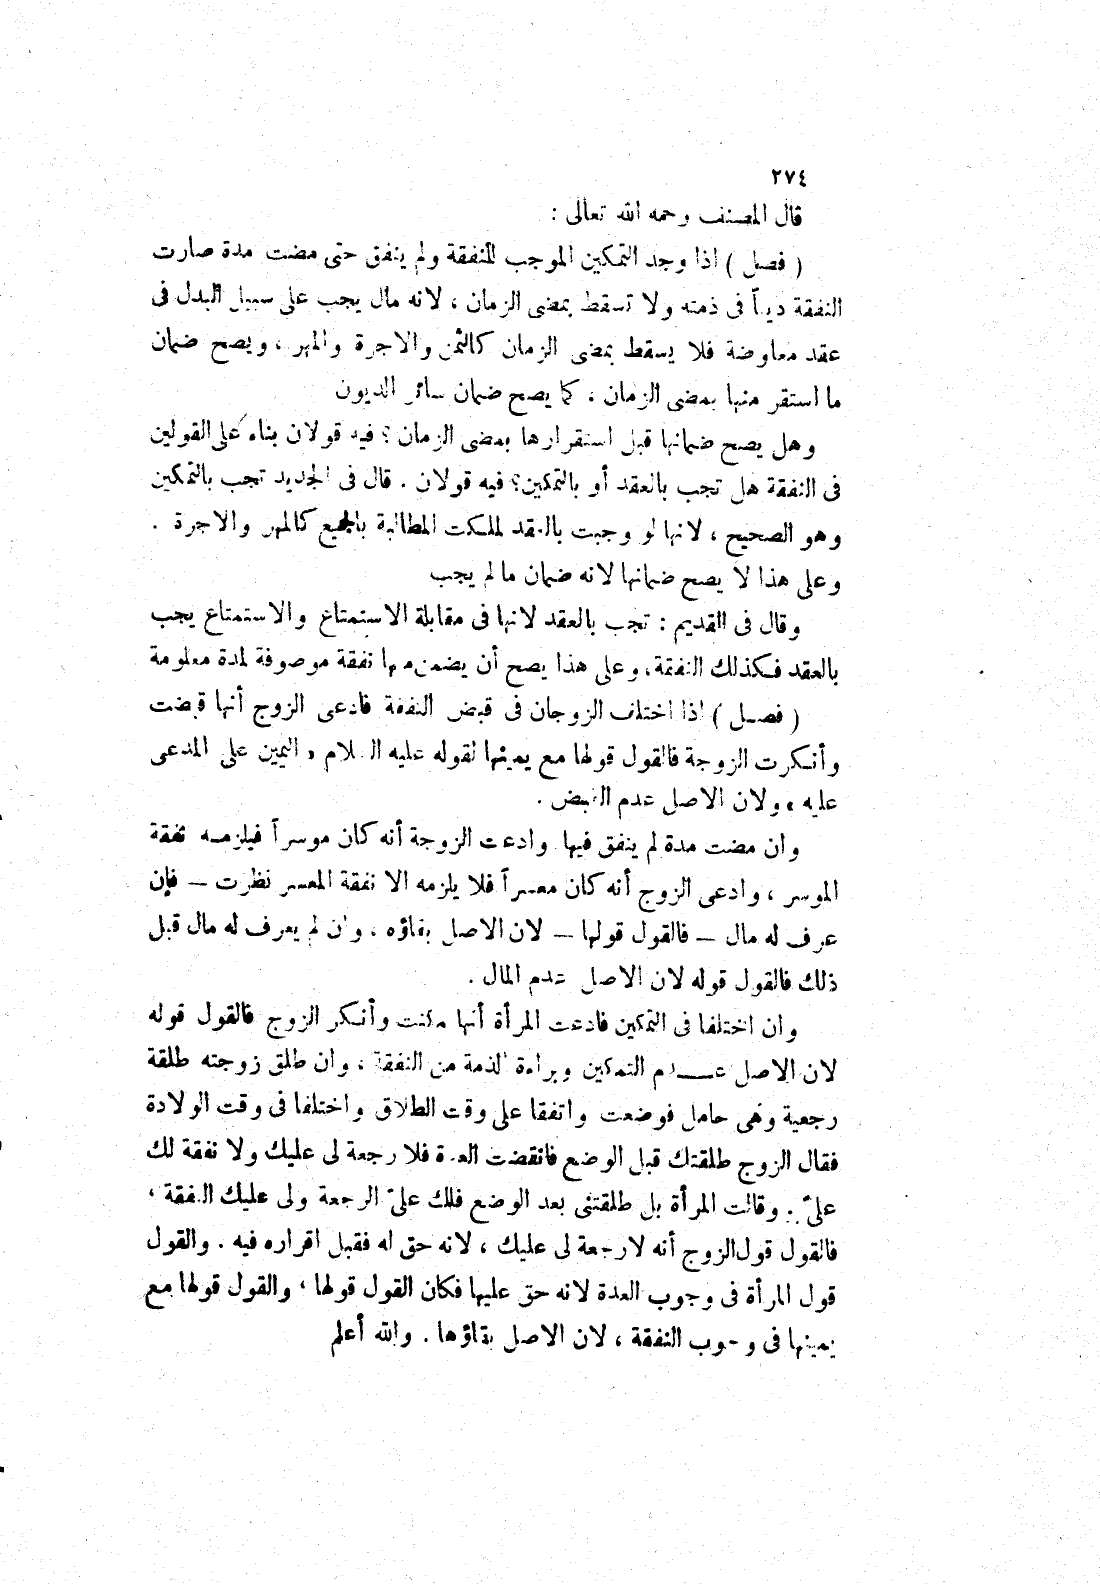 ٢٧٤
قال المصنف رحمه الله تعالى :
( فصل ) اذا وجد التمكين الموجب للنفقة ولم ينفق حتى مضت مدة صارت
النفقة ديناً فى ذمته ولا تسقط بمضى الزمان ، لانه مال يجب على سبيل البدل فى
عقد معاوضة فلا يسقط بمضى الزمان كالثمن والاجرة والمهر ، ويصح ضمان
ما استقر منها بمضى الزمان ، كما يصح ضمان سائر الديون
وهل يصح ضمانها قبل استقرارها بمضى الزمان ؟ فيه قولان بناء على القولين
فى النفقة هل تجب بالعقد أو بالتمكين؟ فيه قولان . قال فى الجديد تجب بالتمكين
وهو الصحيح ، لانها لو وجبت بالعقد لملكت المطالبة بالجميع كالمهر والاجرة .
وعلى هذا لا يصح ضمانها لانه ضمان ما لم يجب
وقال فى القديم : تجب بالعقد لانها فى مقابلة الاستمتاع والاستمتاع يجب
بالعقد فكذلك النفقة، وعلى هذا يصح أن يضمن منها نفقة موصوفة لمدة معلومة
( فصل ) اذا اختلف الزوجان فى قبض النفقة فادعى الزوج أنها قبضت
وأنكرت الزوجة فالقول قولها مع يمينها لقوله عليه السلام « اليمين على المدعى
عليه » ولان الاصل عدم القبض .
وان مضت مدة لم ينفق فيها وادعت الزوجة أنه كان موسراً فيلزمه نفقة
الموسر ، وادعى الزوج أنه كان معسراً فلا يلزمه الا نفقة المعسر نظرت — فإن
عرف له مال — فالقول قولها — لان الاصل بقاؤه ، وان لم يعرف له مال قبل
ذلك فالقول قوله لان الاصل عدم المال .
وان اختلفا فى التمكين فادعت المرأة أنها مكنت وأنكر الزوج فالقول قوله
لان الاصل عدم التمكين وبراءة الذمة من النفقة ، وان طلق زوجته طلقة
رجعية وهى حامل فوضعت واتفقا على وقت الطلاق واختلفا فى وقت الولادة
فقال الزوج طلقتك قبل الوضع فانقضت العدة فلا رجعة لى عليك ولا نفقة لك
علىّ . وقالت المرأة بل طلقتنى بعد الوضع فلك علىّ الرجعة ولى عليك النفقة ،
فالقول قول الزوج أنه لا رجعة لى عليك ، لانه حق له فقبل اقراره فيه . والقول
قول المرأة فى وجوب العدة لانه حق عليها فكان القول قولها ، والقول قولها مع
يمينها فى وجوب النفقة ، لان الاصل بقاؤها . والله أعلم